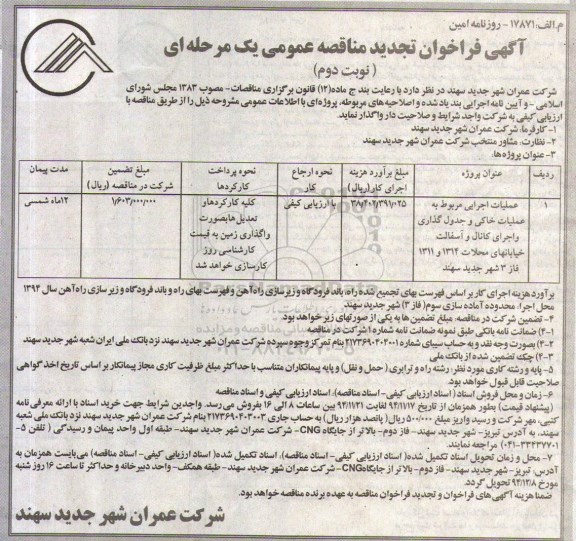 م.الف:۱۷۸۷۱ - روزنامه امین
آگهی فراخوان تجدید مناقصه عمومی یک مرحله ای
( نوبت دوم )
شرکت عمران شهر جدید سهند در نظر دارد با رعایت بند ج ماده(۱۲) قانون برگزاری مناقصات- مصوب ۱۳۸۳ مجلس شورای
اسلامی - و آیین نامه اجرایی بند یاد شده و اصلاحیه های مربوطه، پروژه‌ای با اطلاعات عمومی مشروحه ذیل را از طریق مناقصه با
ارزیابی کیفی به شرکت واجد شرایط و صلاحیت دار واگذار نماید.
۱- کارفرما: شرکت عمران شهر جدید سهند
۲- نظارت: مشاور منتخب شرکت عمران شهر جدید سهند
۳- عنوان پروژه‌ها:
ردیف عنوان پروژه مبلغ برآورد هزینه اجرای کار (ریال) نحوه ارجاع کار نحوه پرداخت کارکردها مبلغ تضمین شرکت در مناقصه (ریال) مدت پیمان
۱ عملیات اجرایی مربوط به ۳۸/۴۰۲/۳۹۱/۰۲۵ با ارزیابی کیفی کلیه کارکردهار ۱/۶۰۳/۰۰۰/۰۰۰ ۱۲ماه شمسی
عملیات خاکی و جدول گذاری تعدیل هابصورت
واجرای کانال و آسفالت واگذاری زمین به قیمت
خیابانهای محلات ۱۳۱۴ و ۱۳۱۱ کارشناسی روز
فاز ۳ شهر جدید سهند کارسازی خواهد شد
برآورد هزینه اجرای کار بر اساس فهرست بهای تجمیع شده راه، باند فرودگاه و زیرسازی راه آهن و فهرست بهای راه و باند فرودگاه و زیر سازی راه آهن سال ۱۳۹۴
محل اجرا: محدوده آماده سازی سوم (فاز ۳) شهر جدید سهند
۴- تضمین شرکت در مناقصه: مبلغ تضمین ها به یکی از صورتهای زیر خواهد بود.
۴-۱) ضمانت نامه بانکی طبق نمونه ضمانت نامه شماره ۱ شرکت در مناقصه
۴-۲) بصورت وجه نقد و به حساب سیبای شماره ۲۱۷۳۶۹۰۴۰۴۰۰۱ بنام تمرکز وجوه سپرده شرکت عمران شهر جدید سهند نزد بانک ملی ایران شعبه شهر جدید سهند
۴-۳) چک تضمین شده از بانک ملی
۵- پایه و رشته کاری مورد نظر: رشته راه و ترابری (حمل و نقل) و پایه پیمانکاران متناسب با حداکثر مبلغ ظرفیت کاری مجاز پیمانکار بر اساس تاریخ اخذ گواهی
صلاحیت قابل قبول خواهد بود.
۶- زمان و محل فروش اسناد ( اسناد ارزیابی کیفی - اسناد مناقصه): اسناد ارزیابی کیفی و اسناد مناقصه
(پیشنهاد قیمت) بطور همزمان از تاریخ ۹۴/۱۱/۱۷ لغایت ۹۴/۱۱/۲۱ بین ساعات ۸ الی ۱۶ بفروش می رسد. واجدین شرایط جهت خرید اسناد با ارائه معرفی نامه
کتبی، مهر شرکت و رسید واریز مبلغ ۵۰۰/۰۰۰ ریال (پانصد هزار ریال) به حساب جاری ۲۱۷۳۶۹۰۴۰۳۰۰۳ بنام شرکت عمران شهر جدید سهند نزد بانک ملی شعبه
سهند، به آدرس تبریز- شهر جدید سهند- فاز دوم- بالاتر از جایگاه CNG - شرکت عمران شهر جدید سهند- طبقه اول واحد پیمان و رسیدگی ( تلفن ۵-
۰۴۱-۳۳۴۳۷۷۰۱) مراجعه نمایند.
۷- محل و زمان تحویل اسناد تکمیل شده( اسناد ارزیابی کیفی- اسناد مناقصه): اسناد تکمیل شده( اسناد ارزیابی کیفی- اسناد مناقصه) می بایست همزمان به
آدرس: تبریز- شهر جدید سهند- فاز دوم- بالاتر از جایگاهCNG- شرکت عمران شهر جدید سهند- طبقه همکف- واحد دبیرخانه و حداکثر تا ساعت ۱۶ روز شنبه
مورخ ۹۴/۱۲/۸ تحویل گردد.
ضمنا هزینه آگهی های فراخوان و تجدید فراخوان مناقصه به عهده برنده مناقصه خواهد بود.
شرکت عمران شهر جدید سهند